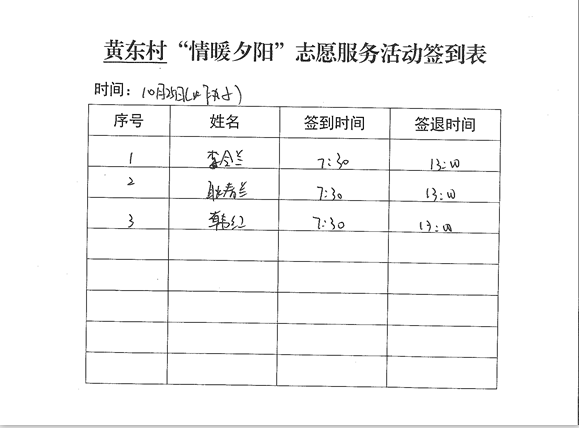 黄东村“情暖夕阳”志愿服务活动签到表
时间：10月25日
序号 姓名 签到时间 签退时间
1 李令兰 7:30 13:00
2 耿春兰 7:30 13:00
3 韩红 7:30 13:00